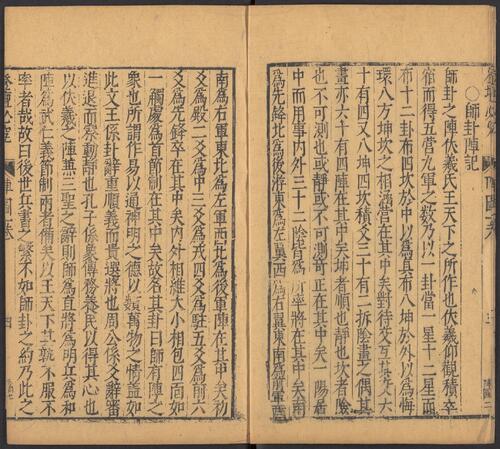 ○師卦陣記
師卦之陣伏羲氏王天下之所作也伏羲仰觀積卒
宿而得五營九軍之數乃以一卦當一星十二星面
布十二卦布四坎於中以為貞布八坤於外以為悔
環八方坤坎之相滿營在其中矣對待交互其爻六
十有四又八坤四坎積爻三十有二拆陰畫之偶其
畫亦六十有四陣在其中矣坤者順也靜也坎者險
也不可測也或靜或不可測奇正在其中矣一陽居
中而用事内外三十二陰皆為所率將在其中矣南
為先鋒北為後游東為左翼西為右翼東南為前軍西
南為右軍東北為左軍西北為後軍陣在其中矣初
爻為殿二爻為中三爻為戎四爻為駐五爻為前六
爻為先鋒卒在其中矣内外相維大小相包四面如
一觸處為首節制在其中矣故名其卦曰師有陣之
象也所謂作易以通神明之德以類萬物之情蓋如
此文王係卦辭重順義而貴選將也周公係爻辭審
進退而察動靜也孔子係象傳務養民以得其心也
以伏羲之陣無三聖之辭則師為直將為明兵為和
陣為武仁義節制兩者備矣以王天下其孰不服不
率者哉故曰後世兵書之繁不如師卦之約乃此之